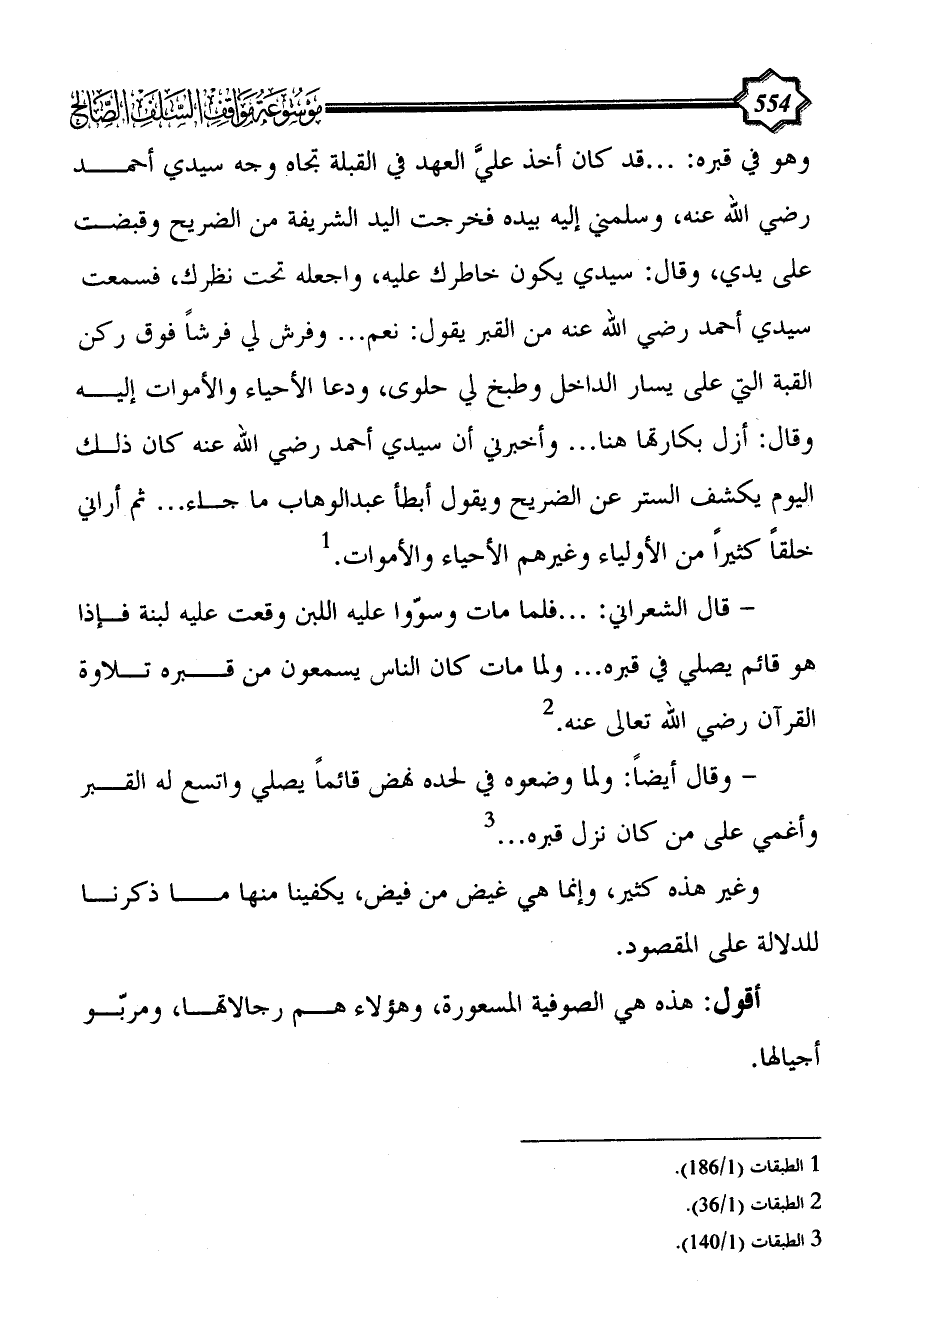 554
موسوعة مواقف السلف الصالح
وهو في قبره: ...قد كان أخذ عليَّ العهد في القبلة تجاه وجه سيدي أحمـــد
رضي الله عنه، وسلمني إليه بيده فخرجت اليد الشريفة من الضريح وقبضـت
على يدي، وقال: سيدي يكون خاطرك عليه، واجعله تحت نظرك، فسمعت
سيدي أحمد رضي الله عنه من القبر يقول: نعم... وفرش لي فرشاً فوق ركن
القبة التي على يسار الداخل وطبخ لي حلوى، ودعا الأحياء والأموات إليـــه
وقال: أزل بكارتها هنا... وأخبرني أن سيدي أحمد رضي الله عنه كان ذلـك
اليوم يكشف الستر عن الضريح ويقول أبطأ عبدالوهاب ما جـاء... ثم أراني
خلقاً كثيراً من الأولياء وغيرهم الأحياء والأموات.1
– قال الشعراني: ...فلما مات وسوّوا عليه اللبن وقعت عليه لبنة فـإذا
هو قائم يصلي في قبره... ولما مات كان الناس يسمعون من قـــبره تـلاوة
القرآن رضي الله تعالى عنه.2
– وقال أيضاً: ولما وضعوه في لحده نهض قائماً يصلي واتسع له القـــبر
وأغمي على من كان نزل قبره...3
وغير هذه كثير، وإنما هي غيض من فيض، يكفينا منها مـــا ذكرنـا
للدلالة على المقصود.
أقول: هذه هي الصوفية المسعورة، وهؤلاء هـم رجالاتهـا، ومربّـو
أجيالها.
1 الطبقات (186/1).
2 الطبقات (36/1).
3 الطبقات (140/1).